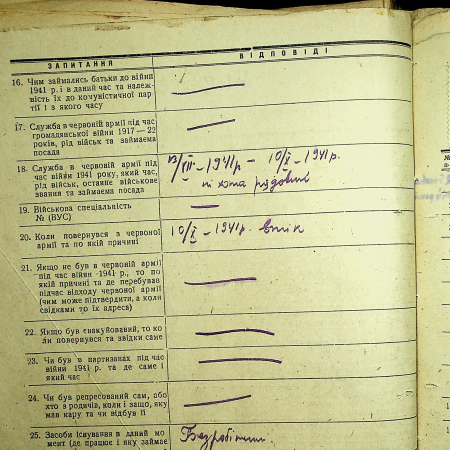 ЗАПИТАННЯ
ВІДПОВІДІ
16. Чим займались батьки до війни
1941 р. і в даний час та належ-
ність їх до комуністичної пар-
тії і з якого часу
17. Служба в червоній армії під час
громадянської війни 1917—22
років, рід військ та займаєма
посада
18. Служба в червоній армії під
час війни 1941 року, який час,
рід військ, останнє військове
звання та займаєма посада
VIII – 1941р – 10/X – 1941р.
піхота рядовий
19. Військова спеціальність
№ (ВУС)
20. Коли повернувся з червоної
армії та по якій причині
10/X – 1941р. втік
21. Якщо не був в червоній армії
під час війни -1941 р., то по
якій причині та де перебував
підчас відходу червоної армії
(чим може підтвердити, а коли
свідками то їх адреса)
22. Якщо був евакуйований, то ко-
ли повернувся та звідки саме
23. Чи був в партизанах під час
війни 1941 р. та де саме і
який час
24. Чи був репресований сам, або
хто з родичів, коли і защо, яку
мав кару та чи відбув її
25. Засоби існування в даний мо-
мент (де працює і яку займає
Безробітний.